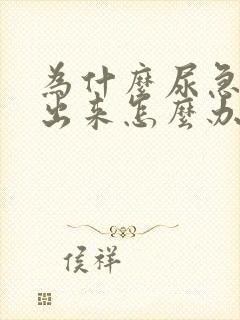 为什麼尿急
出来怎麼办
侯祥